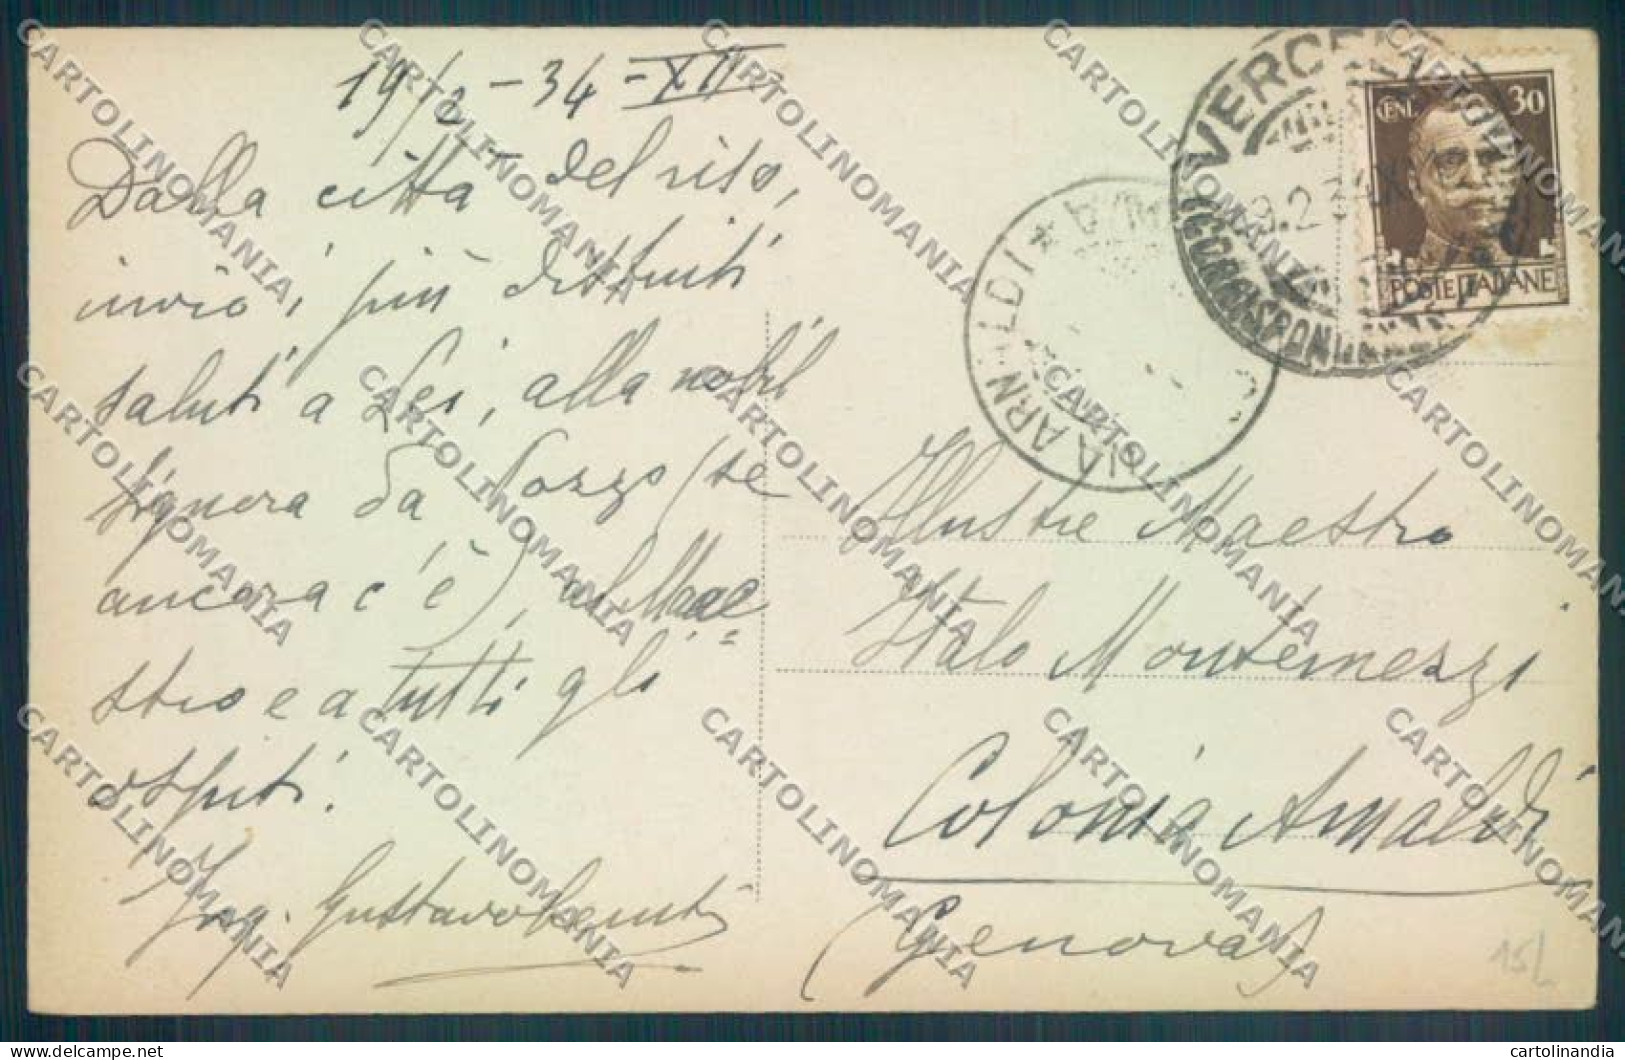 19/2-34-XII
Dalla città del riso,
invio i più distinti
saluti a Lei, alla nobil
Signora Da Pozzo (se
ancora c'è), al Mae=
stro e a tutti gli
ospiti.
Ing. Gustavo
VERCELLI
CORRISPONDENZE
.2.34
CENT. 30
POSTE ITALIANE
COLONIA ARNALDI *
Illustre Maestro
Italo Montemezzi
Colonia Arnaldi
(Genova)
15/-
CARTOLINOMANIA
delcampe.net
cartolinandia